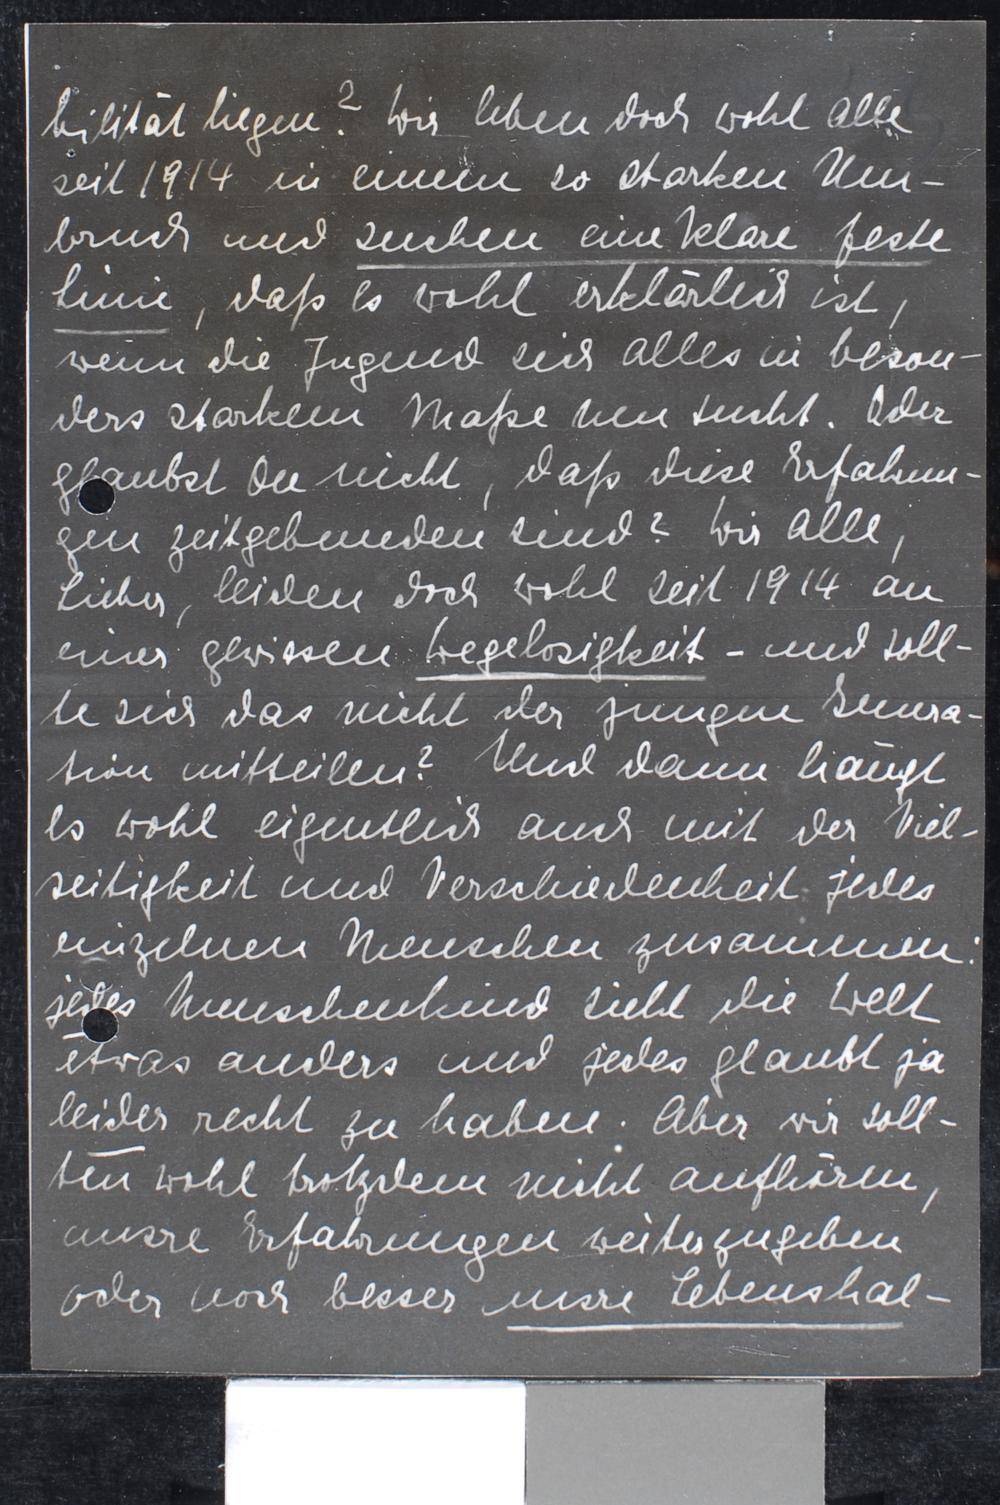 bilität liegen? Wir leben doch wohl alle
seit 1914 in einem so starken Um-
bruch und suchen eine klare feste
Linie, daß es wohl erklärlich ist,
wenn die Jugend sich alles in beson-
ders starkem Maße neu sucht. Oder
glaubst Du nicht, daß diese Erfahrun-
gen zeitgebunden sind? Wir alle,
Lieber, leiden doch wohl seit 1914 an
einer gewissen Wegelosigkeit - und soll-
te sich das nicht der jungen Genera-
tion mitteilen? Und dann hängt
es wohl eigentlich auch mit der Viel-
seitigkeit und Verschiedenheit jedes
einzelnen Menschen zusammen:
jedes Menschenkind sieht die Welt
etwas anders und jedes glaubt ja
leider recht zu haben. Aber wir soll-
ten wohl trotzdem nicht aufhören,
unsre Erfahrungen weiterzugeben
oder noch besser unsre Lebenshal-